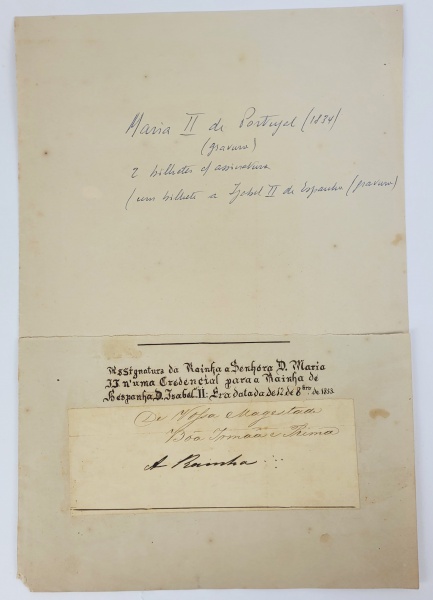 Maria II de Portugal (1834)
(gravura)
2 bilhetes c/ assinatura
(um bilhete a Isabel II de Espanha) (gravura)
Assignatura da Rainha a Senhora D. Maria
II n'uma Credencial para a Rainha de
Hespanha, D. Isabel II: Era datada de 12 de 8bro. de 1853.
De Vossa Magestade
Bôa Irmãa e Prima
A Rainha